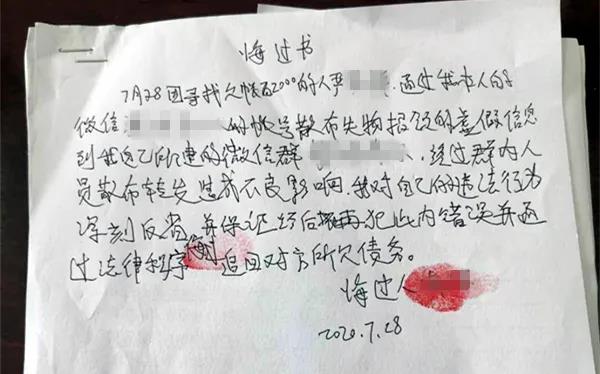 悔过书
7月28因寻找欠帐款2000的人严 通过我本人的
微信 的帐号散布失物招领的虚假信息
到我自己所建的微信群 、经过群内人
员散布转发造成不良影响，我对自己的违法行为
深刻反省并保证以后不再犯此内错误并通
过法律程序 追回对方所欠债务。
悔过人
2020.7.28